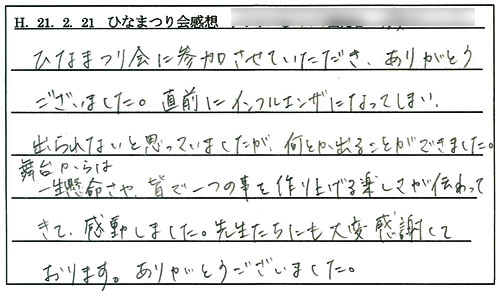 H. 21. 2. 21 ひなまつり会感想
ひなまつり会に参加させていただき、ありがとう
ございました。直前にインフルエンザになってしまい、
出られないと思っていましたが、何とか出ることができました。
舞台からは
一生懸命さや、皆で一つの事を作り上げる楽しさが伝わって
きて、感動しました。先生たちにも大変感謝して
おります。ありがとうございました。